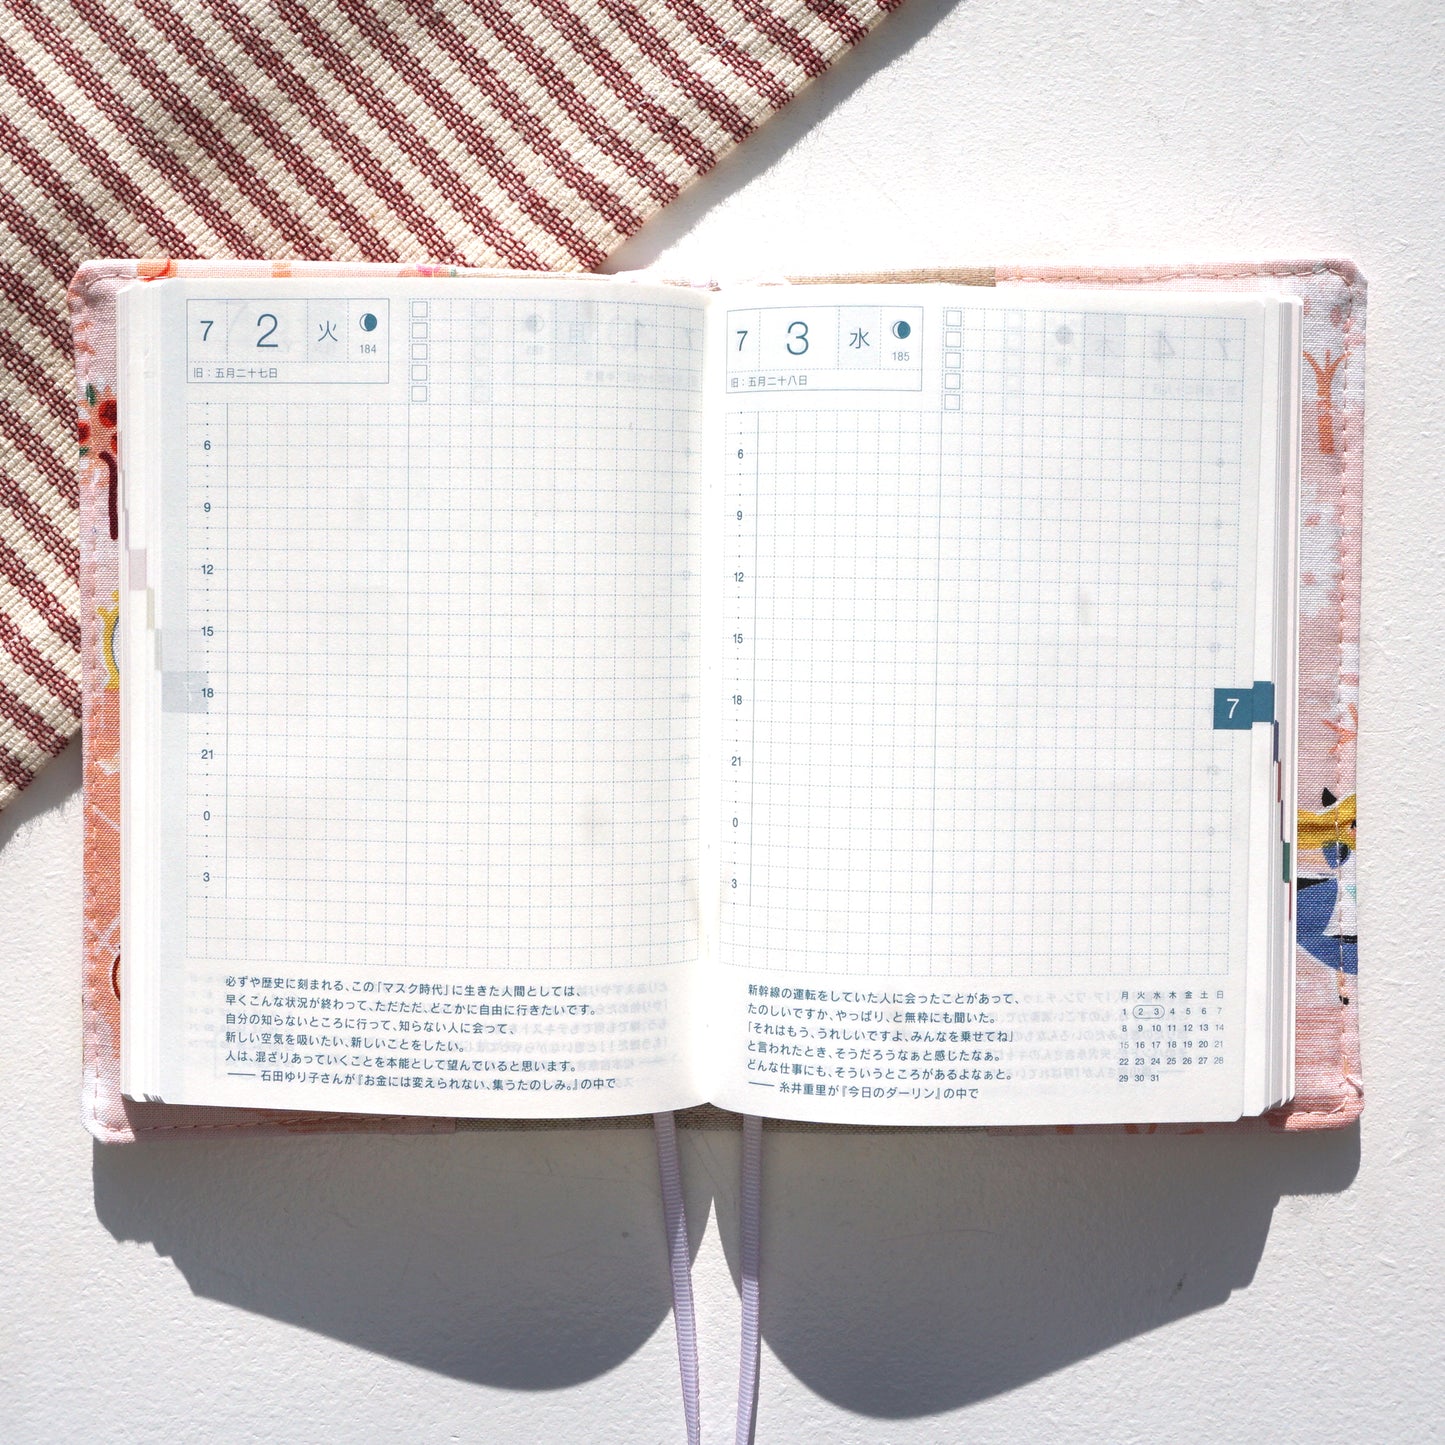 7 2 火
184
旧：五月二十七日
6
9
12
15
18
21
0
3
必ずや歴史に刻まれる、この「マスク時代」に生きた人間としては、
早くこんな状況が終わって、ただただ、どこかに自由に行きたいです。
自分の知らないところに行って、知らない人に会って、
新しい空気を吸いたい、新しいことをしたい。
人は、混ざりあっていくことを本能として望んでいると思います。
—— 石田ゆり子さんが『お金には変えられない、集うたのしみ。』の中で
7 3 水
185
旧：五月二十八日
6
9
12
15
18
21
0
3
7
新幹線の運転をしていた人に会ったことがあって、
たのしいですか、やっぱり、と無粋にも聞いた。
「それはもう、うれしいですよ、みんなを乗せてね」
と言われたとき、そうだろうなぁと感じたなぁ。
どんな仕事にも、そういうところがあるよなぁと。
—— 糸井重里が『今日のダーリン』の中で
月 火 水 木 金 土 日
1 2 3 4 5 6 7
8 9 10 11 12 13 14
15 16 17 18 19 20 21
22 23 24 25 26 27 28
29 30 31